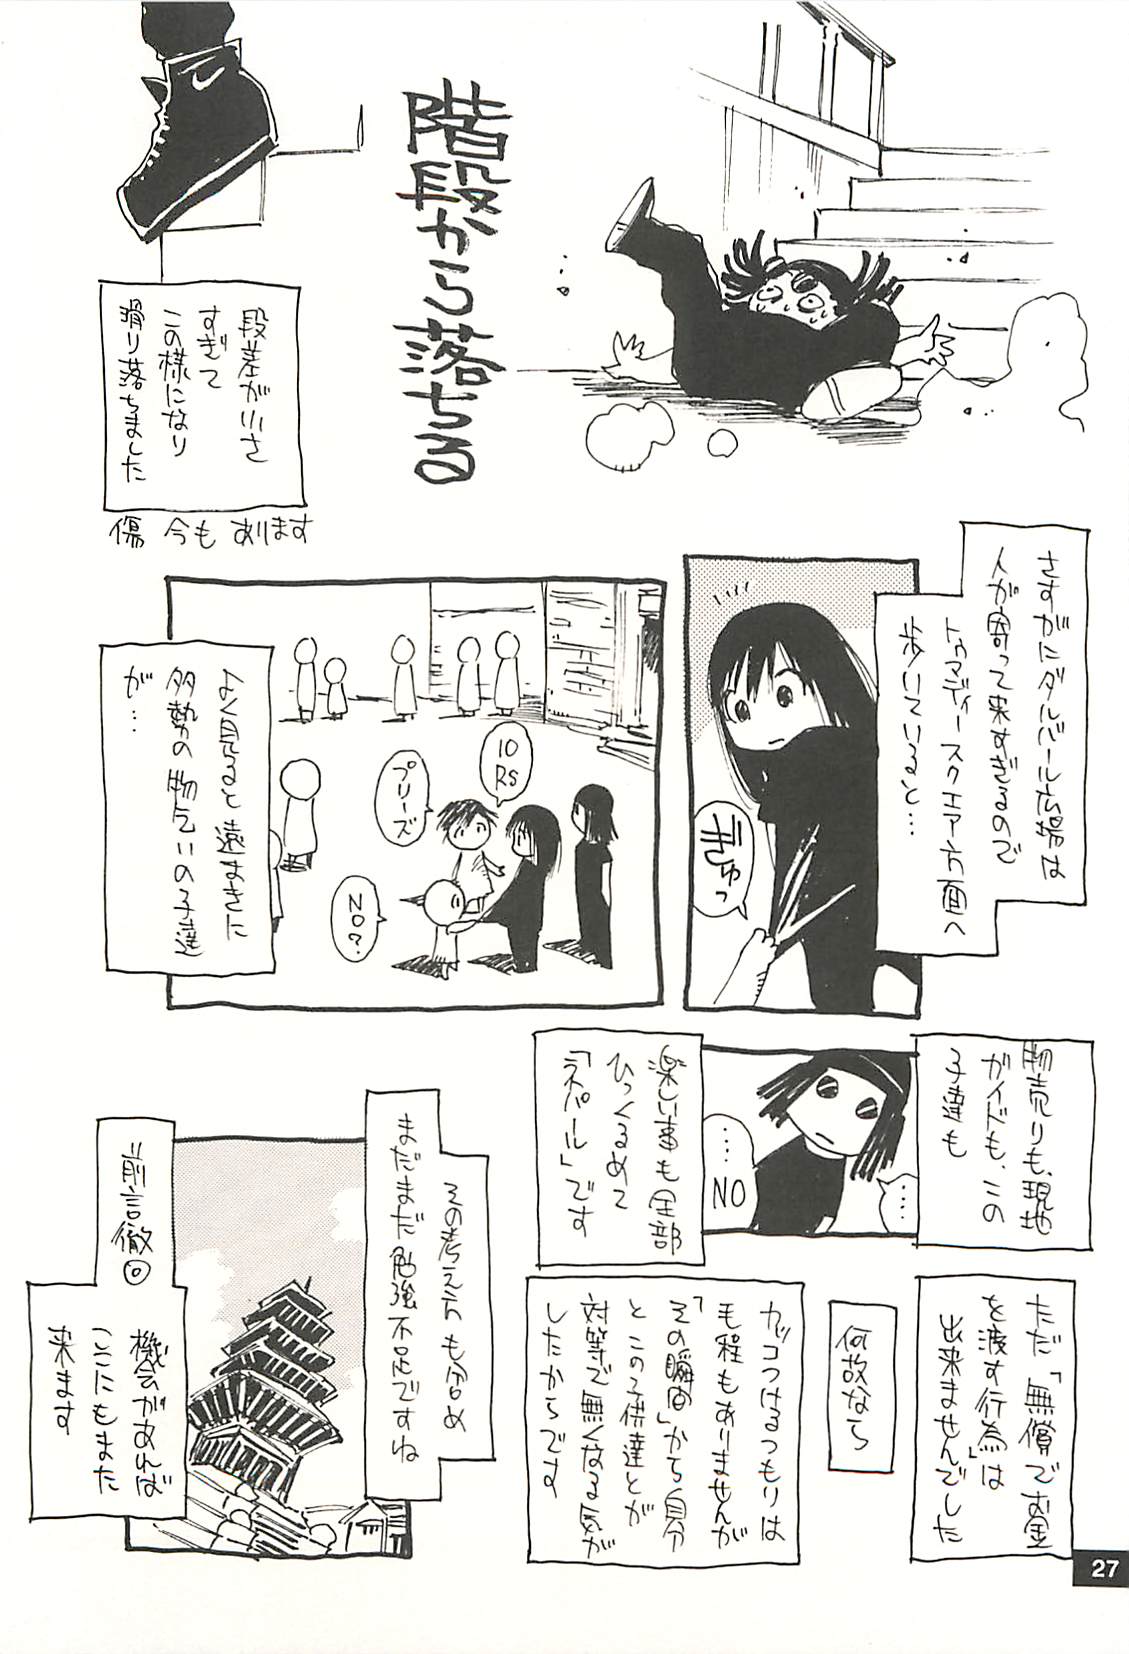 階段から落ちる
段差が小さ
すぎて
この様になり
滑り落ちました
傷 今も あります
さすがにダルバール広場は
人が寄って来すぎるので
トゥマディースクエアー方面へ
歩いていると…
ぎゅっ
10
RS
プリーズ
NO?
よく見ると遠まきに
多勢の物乞いの子達
が…
物売りも、現地
ガイドも、この
子達も
……
……
NO
楽しい事も全部
ひっくるめて
「ネパール」です
ただ「無償でお金
を渡す行為」は
出来ませんでした
何故なら
カッコつけるつもりは
毛程もありませんが
「その瞬間」から自分
とこの子供達とが
対等で無くなる気が
したからです
その考え方も含め
まだまだ勉強不足ですね
前言撤回
機会があれば
ここにもまた
来ます
27